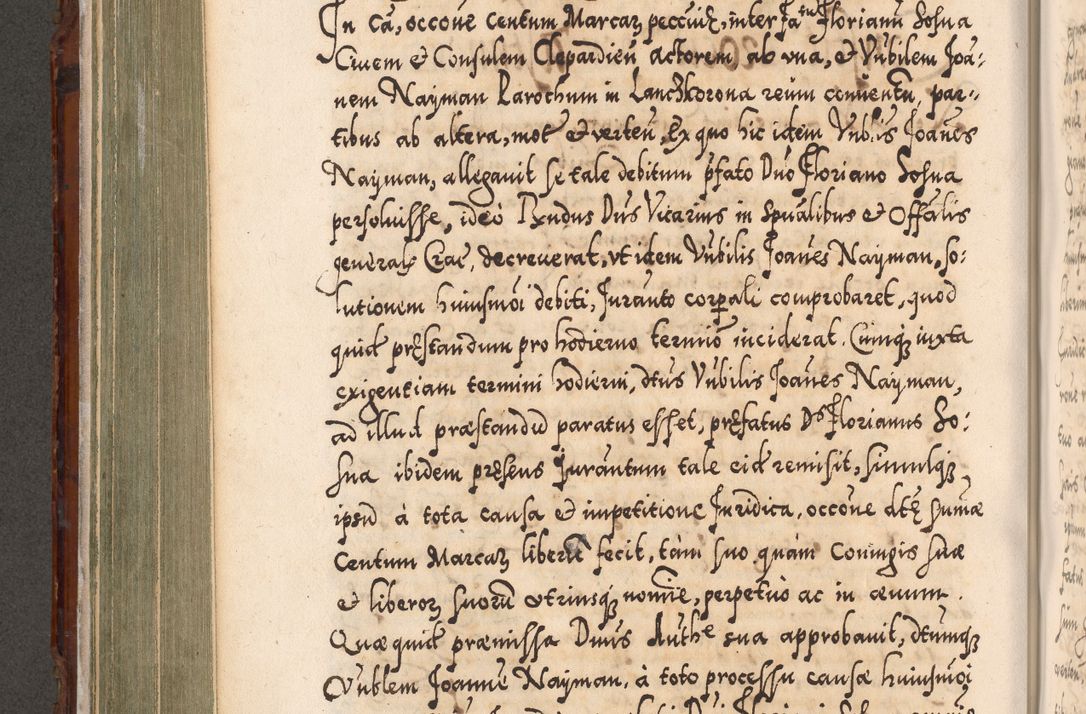 In cā, occone Centum Marcaꝝ peccuꝝ, inter Fatū Florianū Sosna
Ciuem & Consulem Clepardieū actorem ab vna, & Vūbilem Joā-
nem Nayman Parochum in Lanczkorona reūm conuentū, par-
tibus ab altera, mot & verteñ, Ex quo hic idem Vūblis Joañes
Nayman, allegauit se tale debitum p̄fato Dnō Floriano Sosna
persoluisse, ideo Rēndus Dn̄s Vicarius in Spūalibus & Offālis
generals Crac, decreuerat, vt idem Vūbilis Joañes Nayman, so-
lutionem huiusmōi debiti, Jurānto corꝑali comprobaret, quod
quid pręstandum pro hodierno termiō inciderat. Cumqꝫ iuxta
exigentiam termini hodierni, dtūs Vūbilis Joañes Nayman,
ad illud præstandū paratus esset, pręfatus Ds Florianus So-
sna ibidem pręsens Jurāntum tale eid remisit, simulqꝫ
ipsū à tota causa & impetitione Juridica, occone dtę sumæ
Centum Marcaꝝ liberū fecit, tàm suo quàm Coniugis suæ
& liberoꝝ suorū vtrinsqꝫ nomīe, perpetuò ac in æuum.
Quæ quid præmissa Dnūs Authe sua approbauit, dtumqꝫ
Vūblem Joannē Nayman, à toto processu causæ huiusmōi